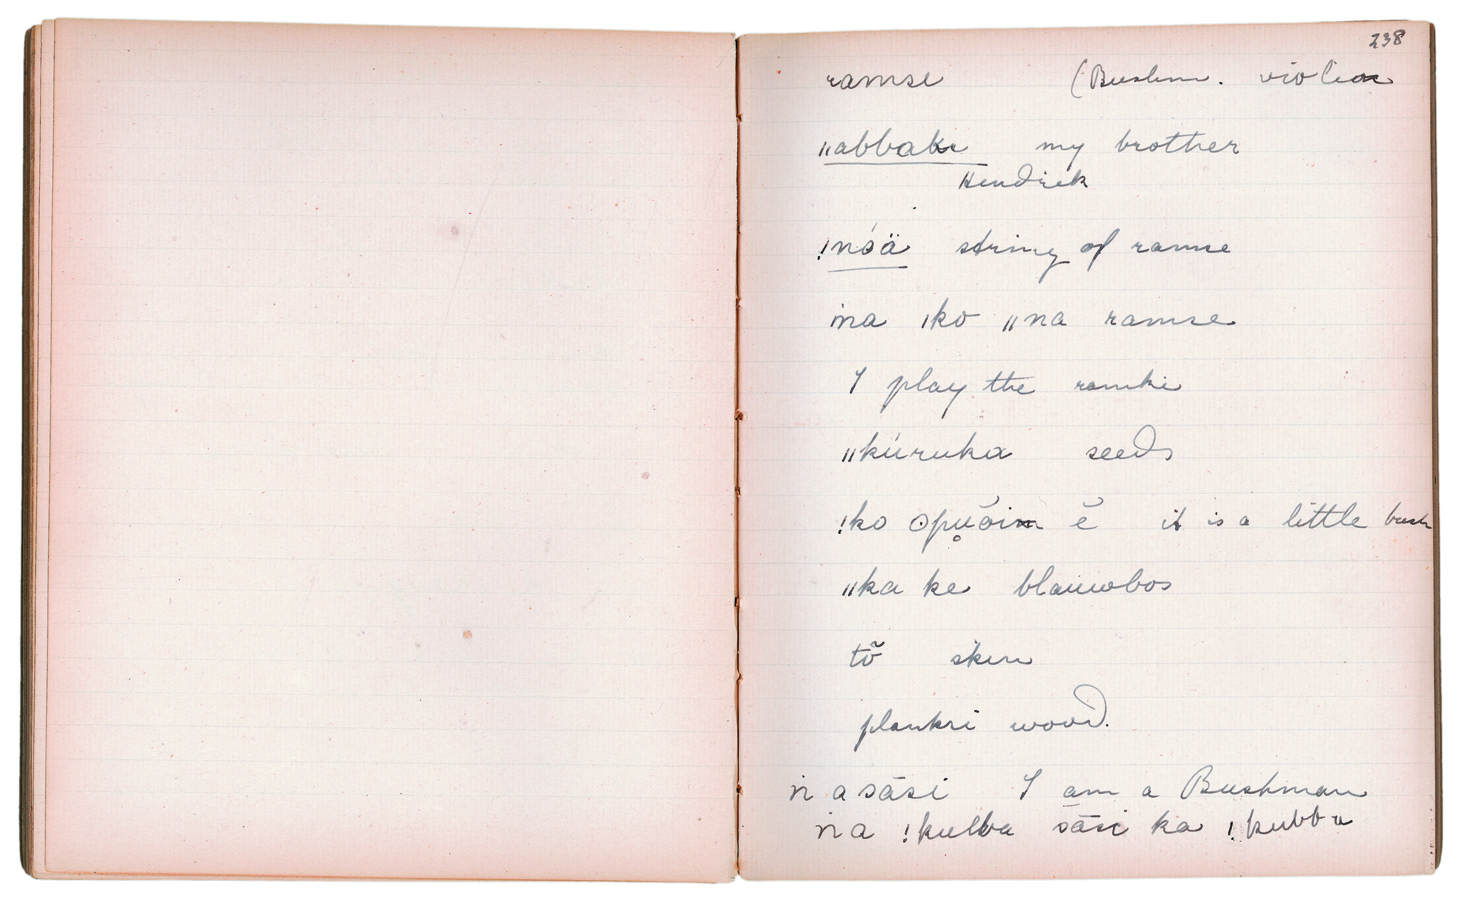 238
ramse (Bushm. violin
ǁabbakı my brother
Hendrick
!nóä string of ramse
ṅa ǀko ǁna ramse
I play the ramki
ǁkúruka seeds
!ko opŭoin ĕ it is a little bush
ǁka ke blauwbos
tõ skin
plankri wood.
ṅ a sāsi I am a Bushman
ṅa !kulba sāsi ka !kubba